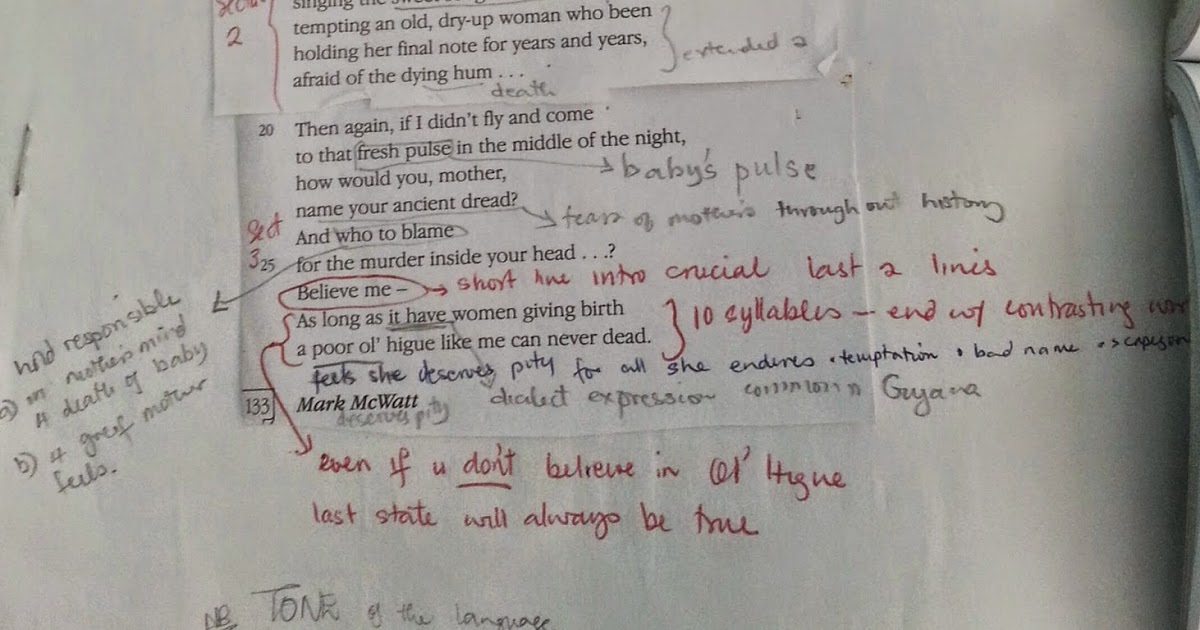 singing the
2
tempting an old, dry-up woman who been
holding her final note for years and years,
extended 2
afraid of the dying hum . . .
death
20 Then again, if I didn't fly and come
to that fresh pulse in the middle of the night,
baby's pulse
how would you, mother,
name your ancient dread?
fears of mothers throughout history
Sect
And who to blame
3
25 for the murder inside your head . . .?
Believe me –
short line intro crucial last 2 lines
As long as it have women giving birth
a poor ol' higue like me can never dead.
10 syllables – end w/ contrasting
feels she deserves pity for all she endures • temptation • bad name •
133 Mark McWatt
deserves pity
dialect expression common in Guyana
hold responsible
a) in mother's mind
4 death of baby
b) 4 grief mother
feels.
even if u don't believe in Ol' Higue
last state will always be true
NB TONE of the language